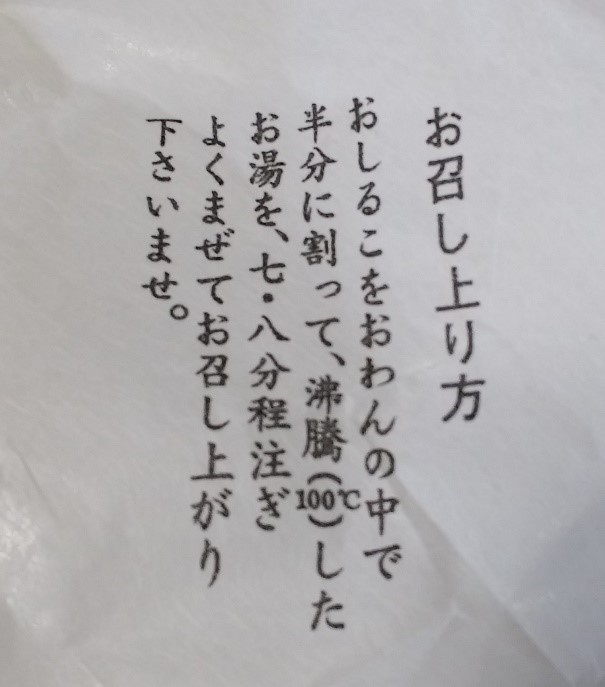 お召し上り方
おしるこをおわんの中で
半分に割って、沸騰(100℃)した
お湯を、七・八分程注ぎ
よくまぜてお召し上がり
下さいませ。